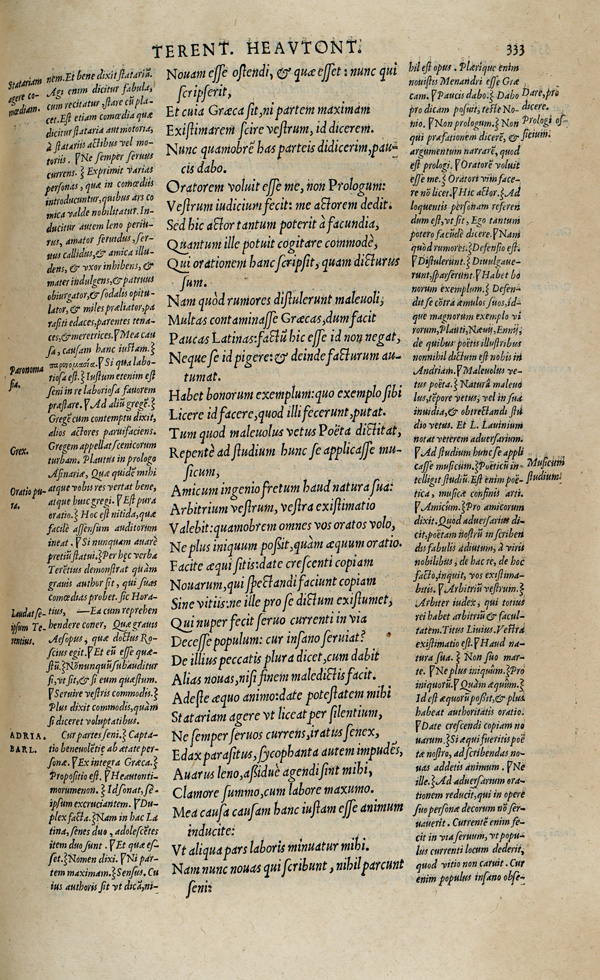 TERENT. HEAVTONT.
333
Statariam
agere co-
mœdiam.
Paronoma
sia.
Grex.
Oratio pu-
ra.
Laudat se-
ipsum Te-
rentius.
ADRIA.
BARL.
nem. Et bene dixit statariā.
Agi enim dicitur fabula,
cum recitatur, stare cū pla-
cet. Est etiam comœdia quæ
dicitur stataria aut motoria,
à statarijs actibus vel mo-
torijs. ꝩNe semper seruus
currens.} Exprimit varias
personas, quæ in comœdijs
introducuntur, quibus ars co
mica valde nobilitatur. In-
ducitur autem leno periu-
rus, amator feruidus, ser-
uus callidus, & amica illu-
dens, & vxor inhibens, &
mater indulgens, & patruus
obiurgator, & sodalis opitu-
lator, & miles præliator, pa
rasiti edaces, parentes tena-
ces, & meretrices. ꝩMea cau
sa, causam hanc iustam.}
παρονομασία. ꝩSi qua labo-
riosa est.} Iustum etenim est
seni in re laboriosa fauorem
præstare. ꝩAd aliū gregē.}
Gregē cum contemptu dixit,
alios actores paruifaciens.
Gregem appellat scenicorum
turbam. Plautus in prologo
Asinariæ, Quæ quidē mihi
atque vobis res vertat bene,
atque huic gregi. ꝩEst pura
oratio.} Hoc est nitida, quæ
facilè assensum auditorum
ineat. ꝩSi nunquam auarè
pretiū statui.} Per hęc verba
Terētius demonstrat quàm
grauis author sit, qui suas
comœdias probet. sic Hora-
tius, —Ea cum reprehen
hendere coner, Quæ grauis
Aesopus, quæ doctus Ro-
scius egit. ꝩEt eū esse quæ-
stū.} Nōnunquā subauditur
si, vt sit, & si eum quæstum.
ꝩSeruire vestris commodis.}
Plus dixit commodis, quàm
si diceret voluptatibus.
Cur partes seni.} Capta-
tio beneuolētiæ ab ætate per-
sonæ. ꝩEx integra Græca.}
Propositio est. ꝩHeautonti-
morumenon.} Id sonat, se-
ipsum excruciantem. ꝩDu-
plex facta.} Nam in hac La
tina, senes duo, adolescētes
item duo sunt. ꝩEt quæ es-
set.} Nomen dixi. ꝩNi par-
tem maximam.} Sensus. Cu
ius authoris sit vt dicā, ni-
Nouam esse ostendi, & quæ esset: nunc qui
scripserit,
Et cuia Græca sit, ni partem maximam
Existimarem scire vestrum, id dicerem.
Nunc quamobrē has parteis didicerim, pau-
cis dabo.
Oratorem voluit esse me, non Prologum:
Vestrum iudicium fecit: me actorem dedit.
Sed hic actor tantum poterit à facundia,
Quantum ille potuit cogitare commodè,
Qui orationem hanc scripsit, quam dicturus
sum.
Nam quòd rumores distulerunt maleuoli,
Multas contaminasse Græcas, dum facit
Paucas Latinas: factū hic esse id non negat,
Neque se id pigere: & deinde facturum au-
tumat.
Habet bonorum exemplum: quo exemplo sibi
Licere id facere, quod illi fecerunt, putat.
Tum quod maleuolus vetus Poëta dictitat,
Repentè ad studium hunc se applicasse mu-
sicum,
Amicum ingenio fretum haud natura sua:
Arbitrium vestrum, vestra existimatio
Valebit: quamobrem omnes vos oratos volo,
Ne plus iniquum possit, quàm æquum oratio.
Facite æqui sitis: date crescenti copiam
Nouarum, qui spectandi faciunt copiam
Sine vitiis: ne ille pro se dictum existumet,
Qui nuper fecit seruo currenti in via
Decesse populum: cur insano seruiat?
De illius peccatis plura dicet, cum dabit
Alias nouas, nisi finem maledictis facit.
Adeste æquo animo: date potestatem mihi
Statariam agere vt liceat per silentium,
Ne semper seruos currens, iratus senex,
Edax parasitus, sycophanta autem impudēs,
Auarus leno, assiduè agendi sint mihi,
Clamore summo, cum labore maxumo.
Mea causa causam hanc iustam esse animum
inducite:
Vt aliqua pars laboris minuatur mihi.
Nam nunc nouas qui scribunt, nihil parcunt
seni:
hil est opus. Plærique enim
nouistis Menandri esse Græ
cam. ꝩPaucis dabo.} Dabo
pro dicam posuit, teste No-
nio. ꝩNon prologum.} Non
qui præfationem dicerē, &
argumentum narrarē, quod
est prologi. ꝩOratorē voluit
esse me.} Oratori vim face-
re nō licet. ꝩHic actor.} Ad
loquentis personam referen
dum est, vt sit, Ego tantum
potero facūdè dicere. ꝩNam
quòd rumores.} Defensio est.
ꝩDistulerunt.} Diuulgaue-
runt, sparserunt. ꝩHabet bo
norum exemplum.} Defen-
dit se cōtra æmulos suos, id-
que magnorum exemplo vi
rorum, Plauti, Næuij, Ennij,
de quibus poëtis illustribus
nonnihil dictum est nobis in
Andriam. ꝩMaleuolus ve-
tus poëta.} Naturâ maleuo
lus, tēpore vetus, vel in sua
inuidia, & obtrectandi stu
dio vetus. Et L. Lauinium
notat veterem aduersarium.
ꝩAd studium hunc se appli
casse musicum.} Poëticū in-
telligit studiū. Est enim poë-
tica, musicæ confinis arti.
ꝩAmicum.} Pro amicorum
dixit. Quod aduersarius di-
cit, poëtam nostrū in scriben
dis fabulis adiutum, à viris
nobilibus, de hac re, de hoc
facto, inquit, vos existima-
bitis. ꝩArbitriū vestrum.}
Arbiter iudex, qui totius
rei habet arbitriū & facul-
tatem. Titus Liuius. ꝩVestra
existimatio est. ꝩHaud na-
tura sua.} Non suo mar-
te. ꝩNe plus iniquum.} Pro
iniquorū. ꝩQuàm æquum.}
Id est æquorū possit, & plus
habeat authoritatis oratio.
ꝩDate crescendi copiam no
uarum.} Si æqui fueritis poë
tæ nostro, ad scribendas no-
uas addetis animum. ꝩNe
ille.} Ad aduersarium ora-
tionem reducit, qui in opere
suo personæ decorum nō ser-
uauerit. Currentē enim fe-
cit in via seruum, vt popu-
lus currenti locum dederit,
quod vitio non caruit. Cur
enim populus insano obse-
Dare, pro
dicere.
Prologi of-
ficium.
Musicum
studium.